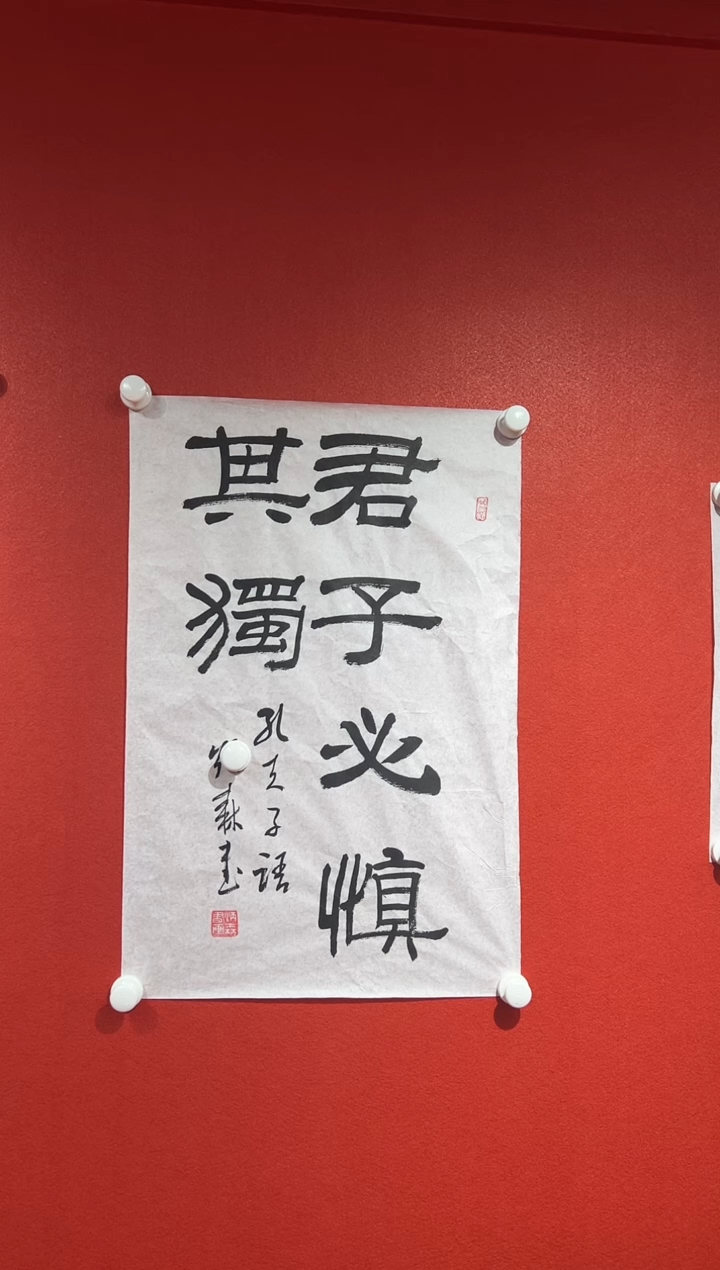 君子必慎
其獨
孔夫子語
森書